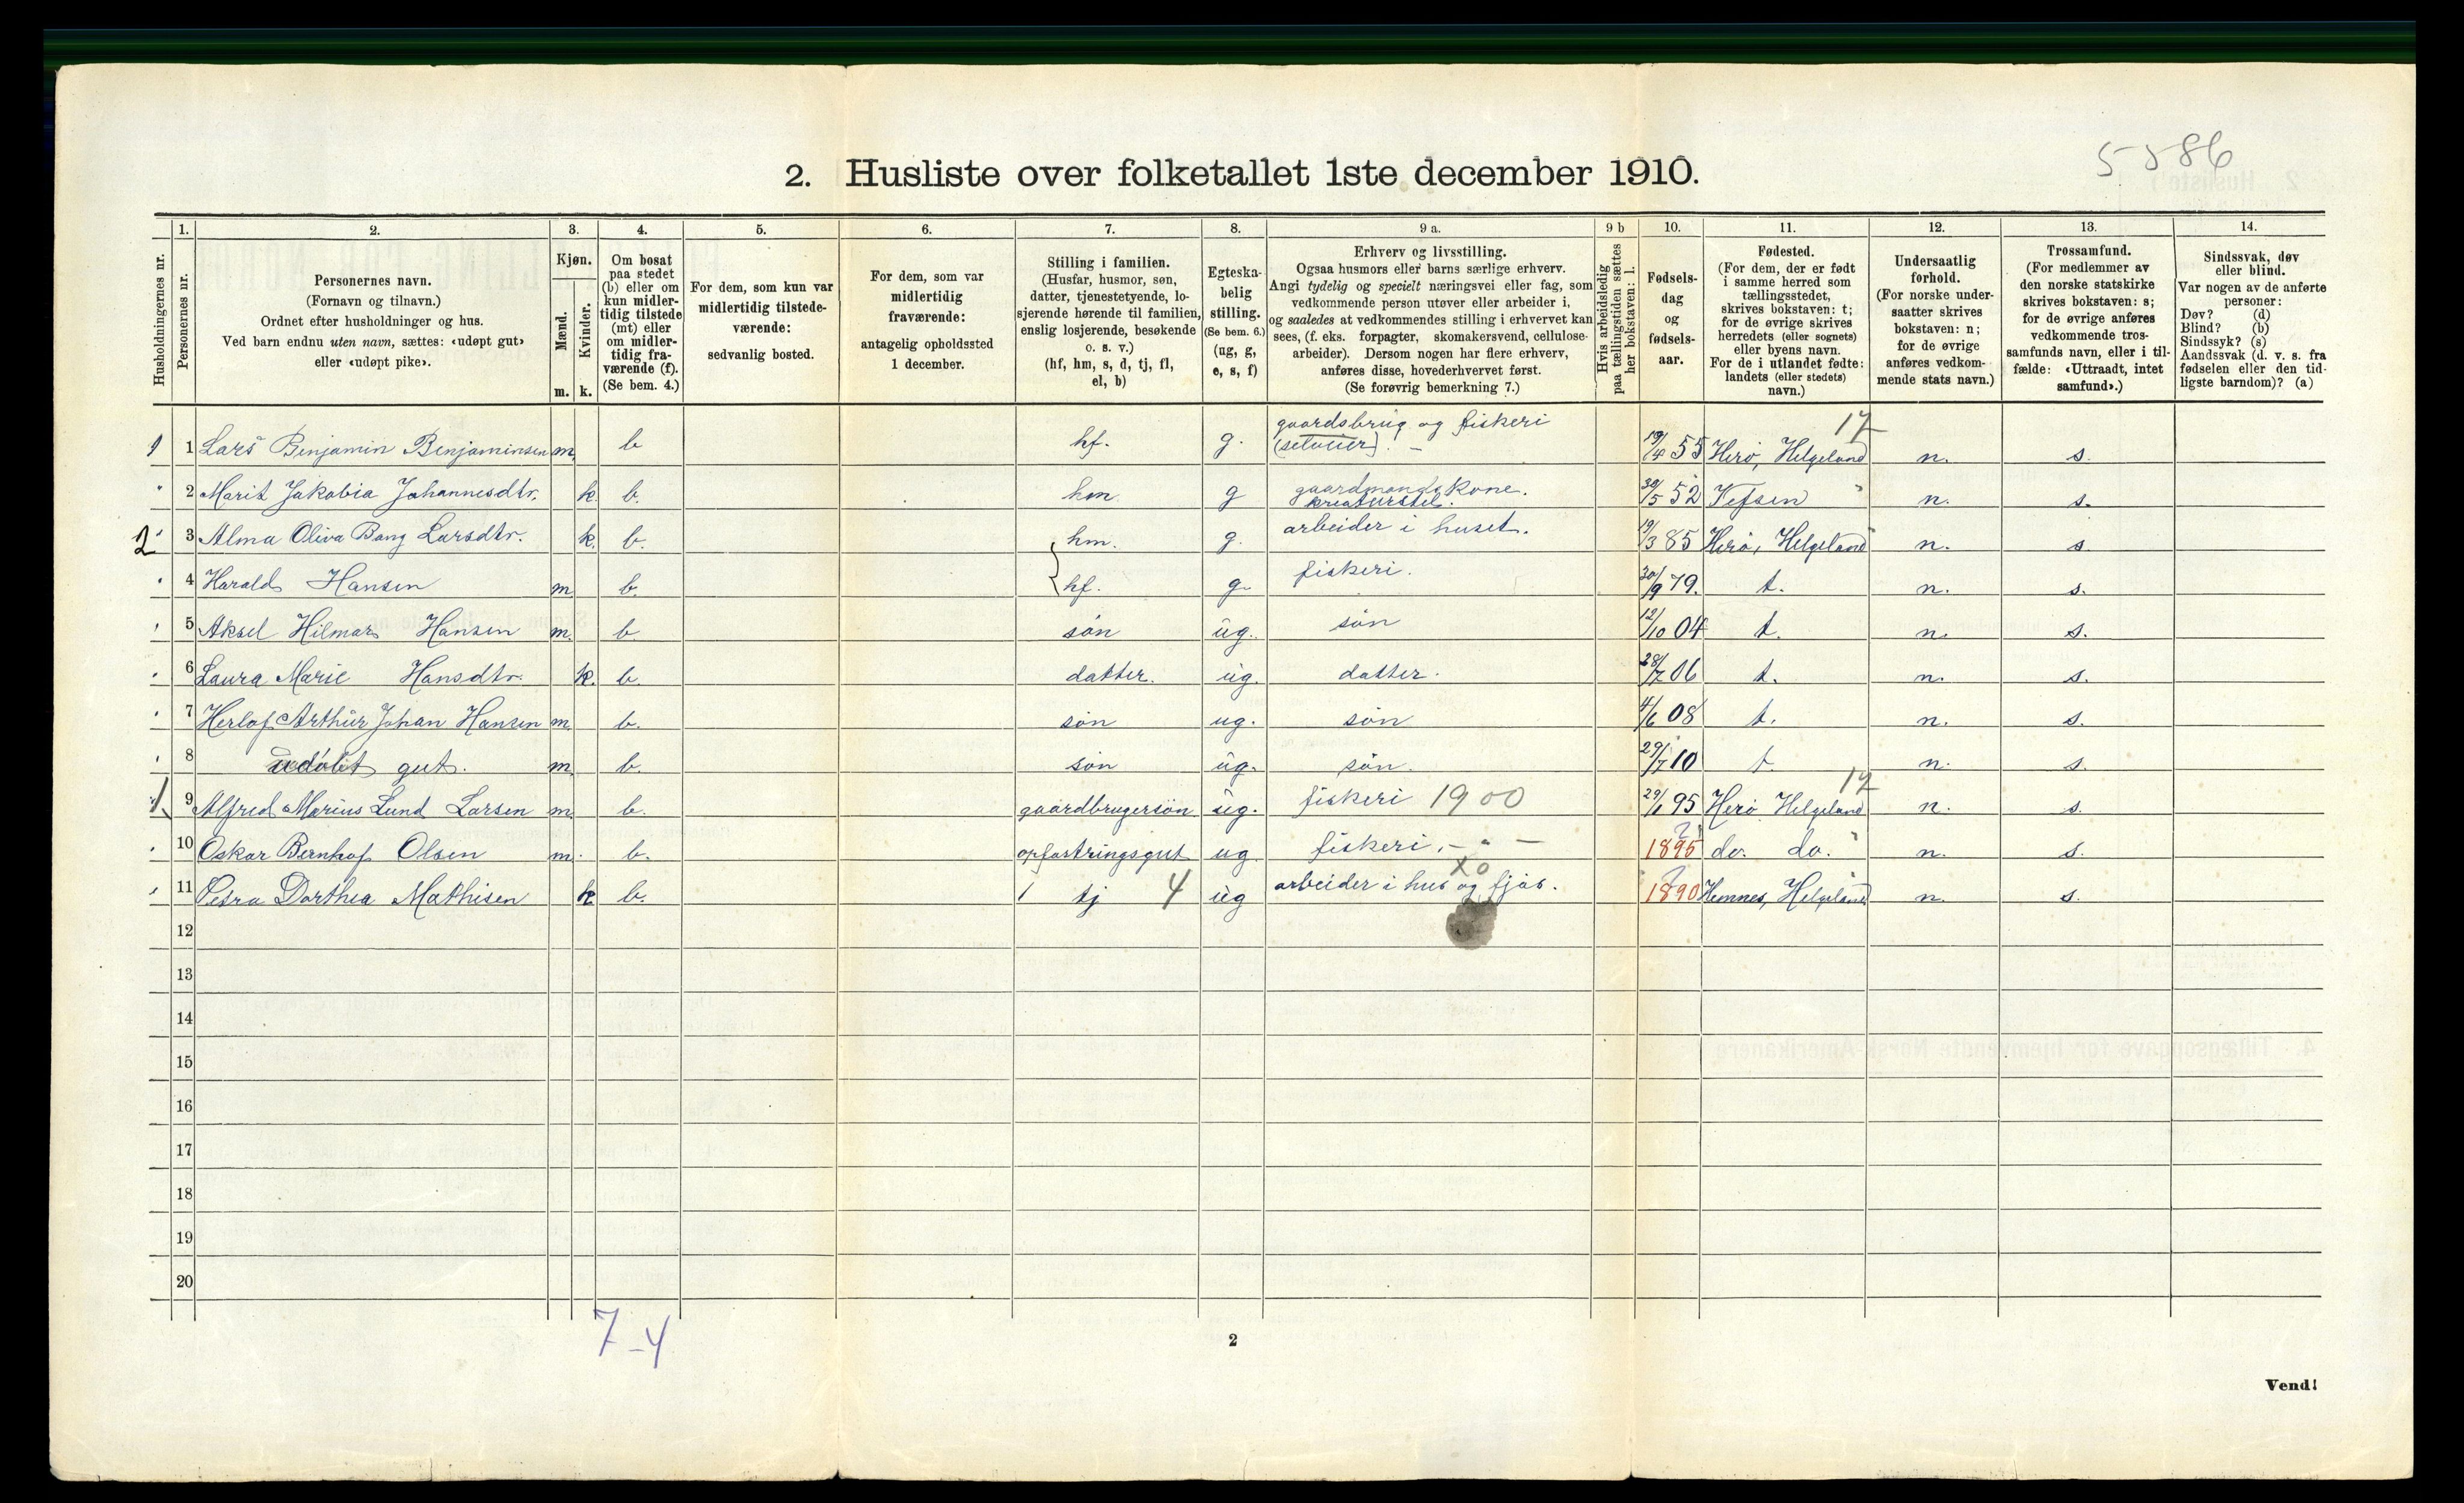 5586
2. Husliste over folketallet 1ste december 1910.
Husholdningernes nr.
1.
Personernes nr.
2.
Personernes navn.
(Fornavn og tilnavn.)
Ordnet efter husholdninger og hus.
Ved barn endnu uten navn, sættes: «udøpt gut»
eller «udøpt pike».
3.
Kjøn.
Mænd.
Kvinder.
m. k.
4.
Om bosat
paa stedet
(b) eller om
kun midler-
tidig tilstede
(mt) eller
om midler-
tidig fra-
værende (f).
(Se bem. 4.)
5.
For dem, som kun var
midlertidig tilstede-
værende:
sedvanlig bosted.
6.
For dem, som var
midlertidig
fraværende:
antagelig opholdssted
1 december.
7.
Stilling i familien.
(Husfar, husmor, søn,
datter, tjenestetyende, lo-
sjerende hørende til familien,
enslig losjerende, besøkende
o. s. v.)
(hf, hm, s, d, tj, fl,
el, b)
8.
Egteska-
belig
stilling.
(Se bem. 6.)
(ug, g,
e, s, f)
9 a.
Erhverv og livsstilling.
Ogsaa husmors eller barns særlige erhverv.
Angi tydelig og specielt næringsvei eller fag, som
vedkommende person utøver eller arbeider i,
og saaledes at vedkommendes stilling i erhvervet kan
sees, (f. eks. forpagter, skomakersvend, cellulose-
arbeider). Dersom nogen har flere erhverv,
anføres disse, hovederhvervet først.
(Se forøvrig bemerkning 7.)
9 b
Hvis arbeidsledig
paa tællingstiden sættes
her bokstaven: l.
10.
Fødsels-
dag
og
fødsels-
aar.
11.
Fødested.
(For dem, der er født
i samme herred som
tællingsstedet,
skrives bokstaven: t;
for de øvrige skrives
herredets (eller sognets)
eller byens navn.
For de i utlandet fødte:
landets (eller stedets)
navn.)
12.
Undersaatlig
forhold.
(For norske under-
saatter skrives
bokstaven: n;
for de øvrige
anføres vedkom-
mende stats navn.)
13.
Trossamfund.
(For medlemmer av
den norske statskirke
skrives bokstaven: s;
for de øvrige anføres
vedkommende tros-
samfunds navn, eller i til-
fælde: «Uttraadt, intet
samfund».)
14.
Sindssvak, døv
eller blind.
Var nogen av de anførte
personer:
Døv? (d)
Blind? (b)
Sindssyk? (s)
Aandssvak (d. v. s. fra
fødselen eller den tid-
ligste barndom)? (a)
1 1 Lars Benjamin Benjaminsen m. b hf. g. gaardsbrug og fiskeri (seleier). 19/4 55 Herö, Helgeland 17 n. s.
2 Marit Jakobia Johannesdtr. k. b. hm. g gaardmandskone. kreaturstel. 30/5 52 Vefsen n. s.
2 3 Alma Oliva Bang Larsdtr. k. b. hm. g. arbeider i huset. 19/3 85 Herö, Helgeland n. s.
4 Harald Hansen m. b. hf. g. fiskeri. 30/9 79. t. n. s.
5 Aksel Hilmar Hansen m. b. sön ug. sön 12/10 04 t. n. s.
6 Laura Marie Hansdtr. k. b. datter. ug. datter. 28/7 06 t. n. s.
7 Herlof Arthur Johan Hansen m. b. sön ug. sön 4/6 08 t. n. s.
8 udöbt gut. m. b. sön ug. sön. 29/7 10 t. n. s.
1 9 Alfred Marius Lund Larsen m. b. gaardbrugersön ug. fiskeri 1900 29/1 95 Herö Helgeland 17 n. s.
10 Oskar Bernhof Olsen m. b. opfostringsgut ug. fiskeri. - " - 1895 ? do. do. n. s.
11 Petra Dorthea Mathisen k. b. 1 tj 4 ug arbeider i hus og fjös. X0 1890 ? Hemnes, Helgeland n. s.
12
13
14
15
16
17
18
19
20
7-4
2
Vend!